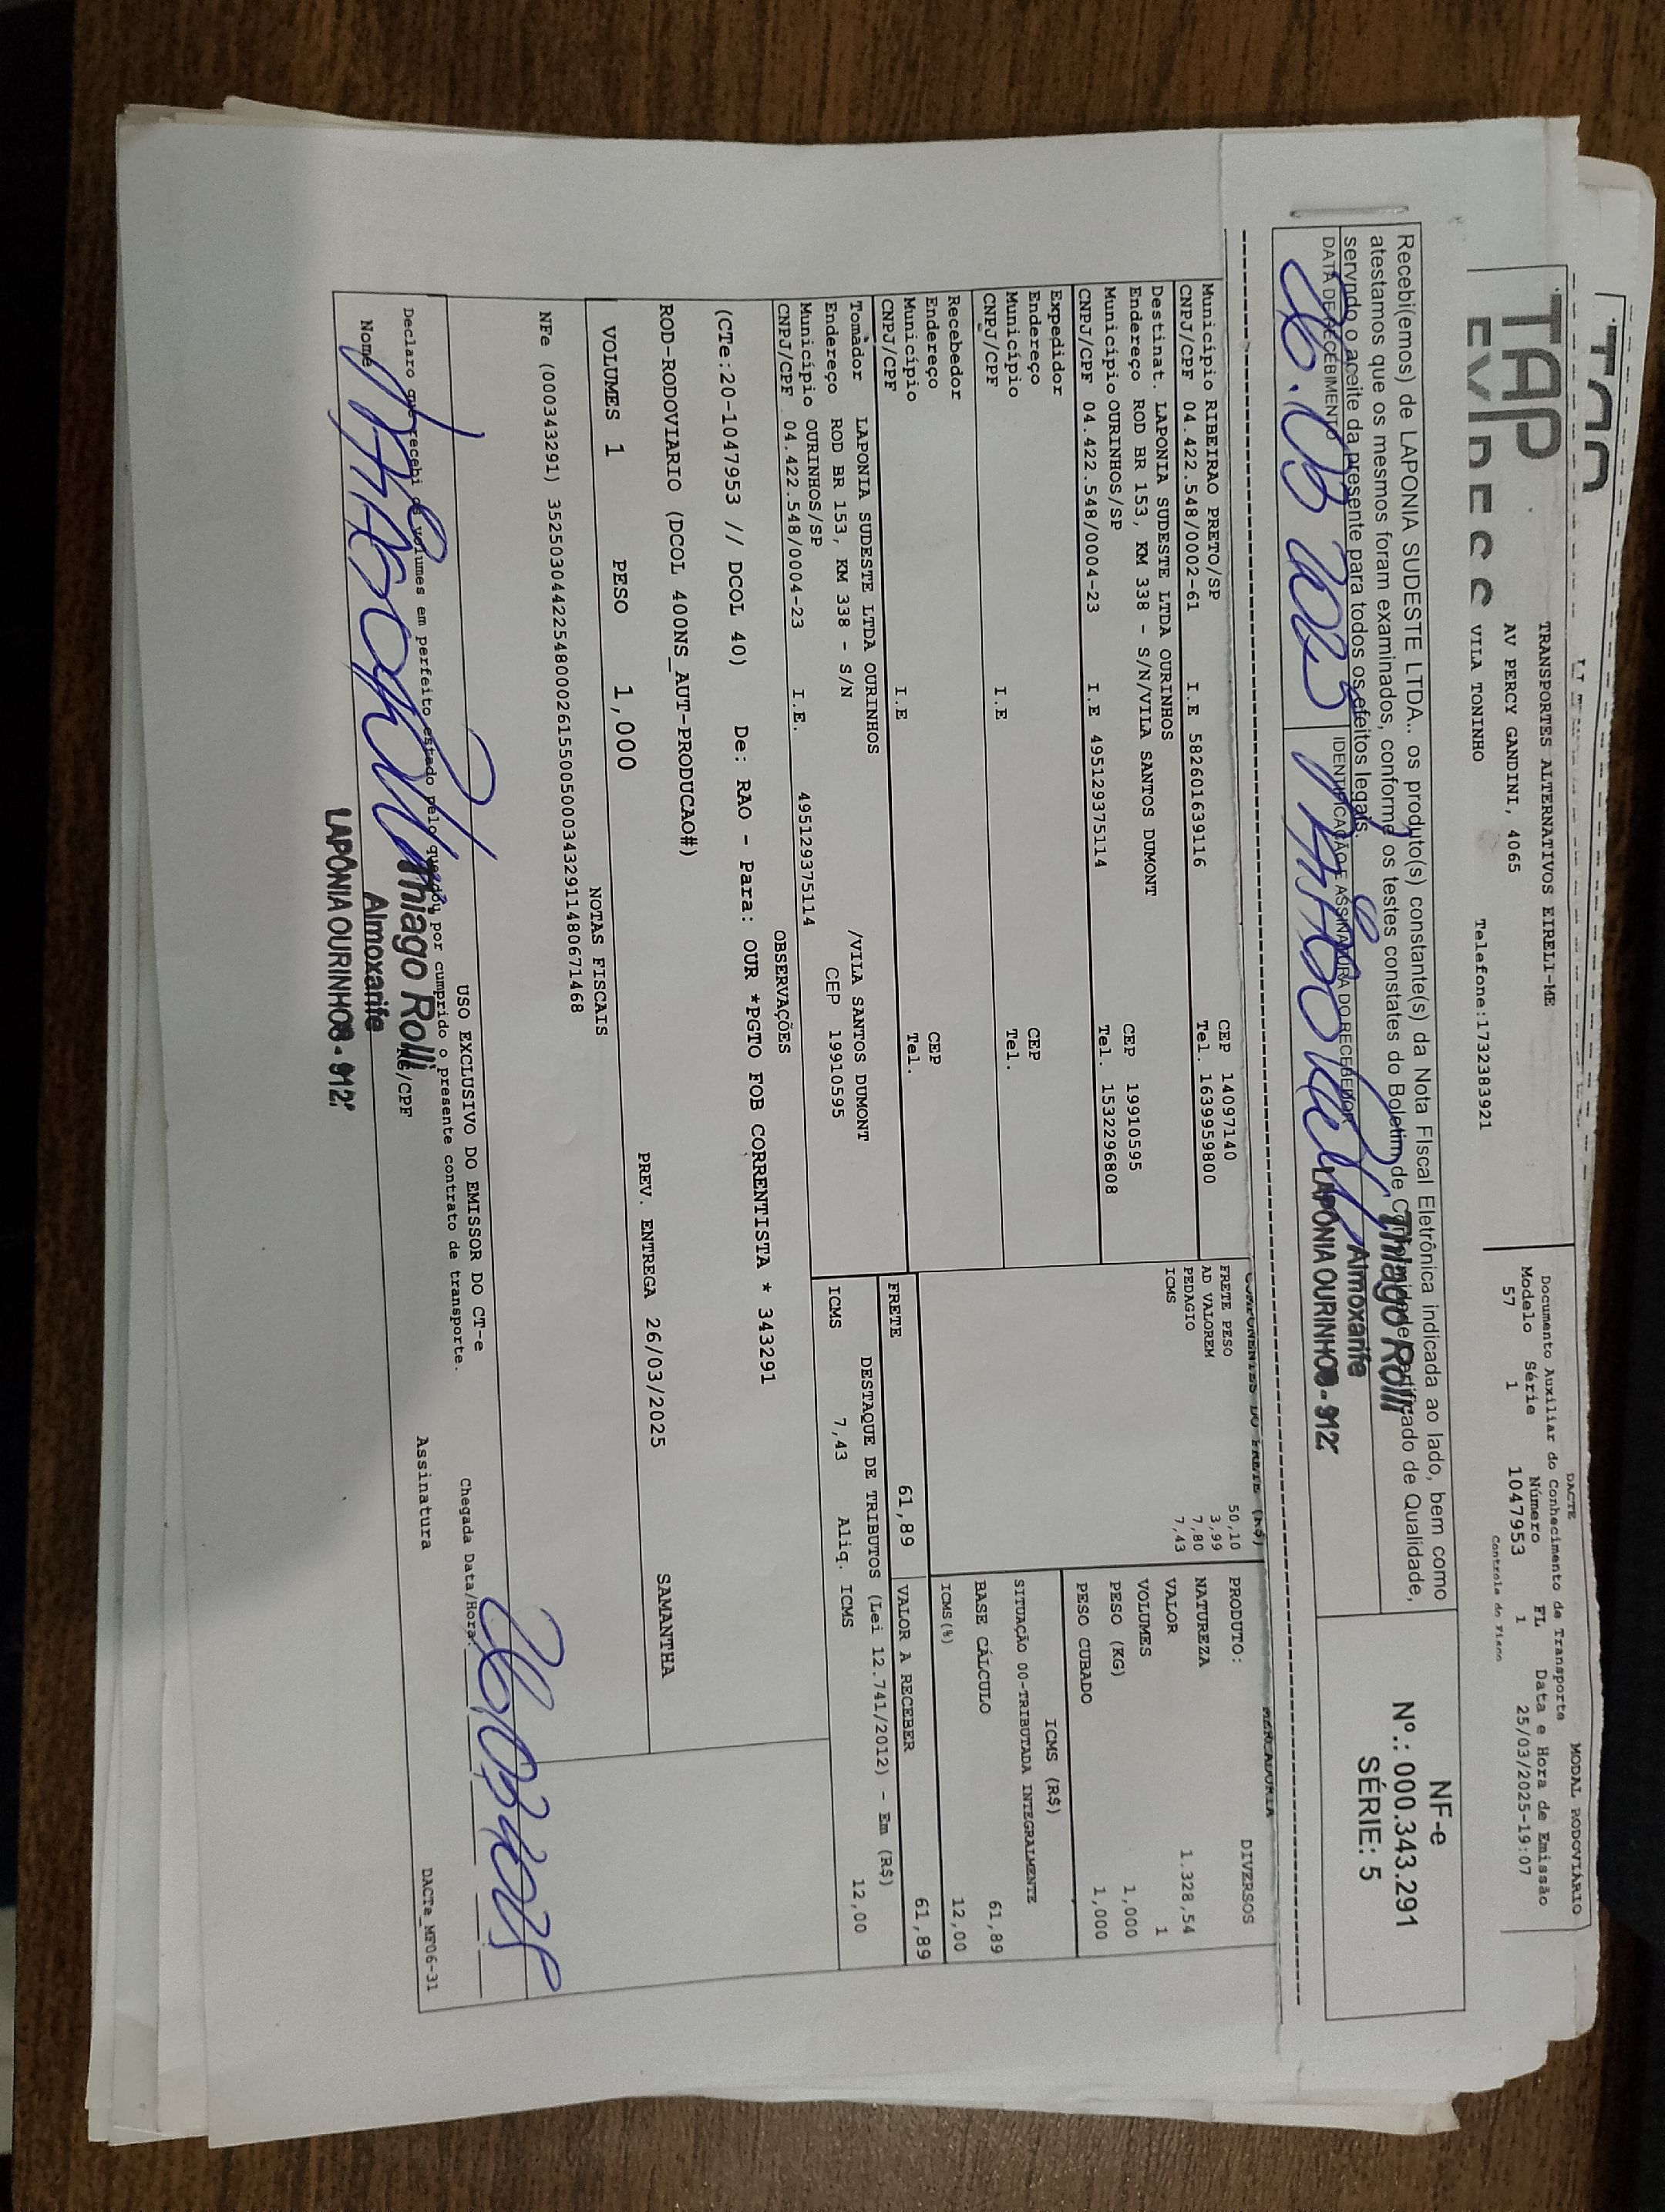 TAP
TRANSPORTES ALTERNATIVOS EIRELI-ME
AV PERCY GANDINI, 4065
VILA TONINHO
Telefone:1732383921
DACTE
MODAL RODOVIÁRIO
Documento Auxiliar do Conhecimento de Transporte
Modelo Série Número FL Data e Hora de Emissão
57 1 1047953 1 25/03/2025-19:07
Controle do Fisco
Recebi(emos) de LAPONIA SUDESTE LTDA.. os produto(s) constante(s) da Nota FIscal Eletrônica indicada ao lado, bem como
atestamos que os mesmos foram examinados, conforme os testes constates do Boletim de Conformidade/Certificado de Qualidade,
servndo o aceite da presente para todos os efeitos legais.
DATA DE RECEBIMENTO
IDENTIFICAÇÃO E ASSINATURA DO RECEBEDOR
Thiago Rolli
Almoxarife
LAPÔNIA OURINHOS - 912
NF-e
Nº.: 000.343.291
SÉRIE: 5
COMPONENTES DO FRETE (R$)
MERCADORIA
Município RIBEIRAO PRETO/SP CEP 14097140
CNPJ/CPF 04.422.548/0002-61 I.E 582601639116 Tel. 1639959800
Destinat. LAPONIA SUDESTE LTDA OURINHOS
Endereço ROD BR 153, KM 338 - S/N/VILA SANTOS DUMONT CEP 19910595
Município OURINHOS/SP
CNPJ/CPF 04.422.548/0004-23 I.E 495129375114 Tel. 1532296808
Expedidor
Endereço CEP
Município
CNPJ/CPF I.E Tel.
Recebedor
Endereço CEP
Município
CNPJ/CPF I.E Tel.
Tomador LAPONIA SUDESTE LTDA OURINHOS
Endereço ROD BR 153, KM 338 - S/N /VILA SANTOS DUMONT
Município OURINHOS/SP CEP 19910595
CNPJ/CPF 04.422.548/0004-23 I.E. 495129375114
FRETE PESO 50,10
AD VALOREM 3,99
PEDAGIO 7,80
ICMS 7,43
PRODUTO: DIVERSOS
NATUREZA
VALOR 1.328,54
VOLUMES 1
PESO (KG) 1,000
PESO CUBADO 1,000
ICMS (R$)
SITUAÇÃO 00-TRIBUTADA INTEGRALMENTE
BASE CÁLCULO 61,89
ICMS(%) 12,00
FRETE 61,89 VALOR A RECEBER 61,89
DESTAQUE DE TRIBUTOS (Lei 12.741/2012) - Em (R$)
ICMS 7,43 Aliq. ICMS 12,00
OBSERVAÇÕES
(CTe:20-1047953 // DCOL 40) De: RAO - Para: OUR *PGTO FOB CORRENTISTA * 343291
ROD-RODOVIARIO (DCOL 400NS_AUT-PRODUCAO#)
VOLUMES 1 PESO 1,000 PREV. ENTREGA 26/03/2025 SAMANTHA
NOTAS FISCAIS
NFe (000343291) 35250304422548000261550050003432911480671468
USO EXCLUSIVO DO EMISSOR DO CT-e
Declaro que recebi os volumes em perfeito estado pelo que dou por cumprido o presente contrato de transporte.
Chegada Data/Hora:
Nome
RG/CPF
Assinatura
DACTe_MF06-31
Thiago Rolli
Almoxarife
LAPÔNIA OURINHOS - 912